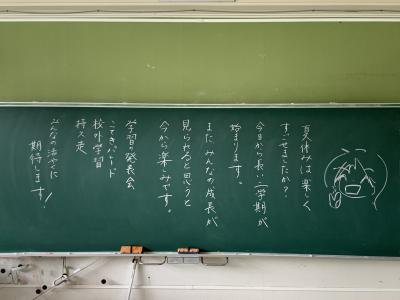 夏休みは楽しく
すごせましたか?
今日から長い二学期が
始まります。
またみんなの成長が
見られると思うと
今から楽しみです。
学習の発表会
こてきパレード
校外学習
持久走
みんなの活やくに
期待します!